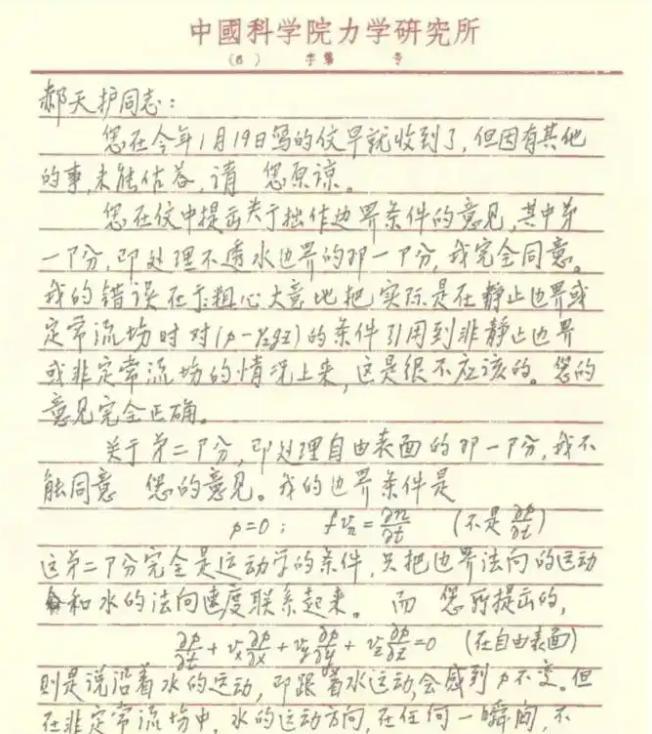 中國科学院力学研究所
(6) 字第 号
郝天护同志：
您在今年1月19日写的信早就收到了，但因有其他
的事，未能作答，请 您原谅。
您在信中提出关于拙作边界条件的意见，其中第
一部分，即处理不透水边界的那一部分，我完全同意。
我的错误在于粗心大意地把实际是在静止边界或
定常流场时对(p-γ₂gz)的条件引用到非静止边界
或非定常流场的情况上来，这是很不应该的。您的
意见完全正确。
关于第二部分，即处理自由表面的那一部分，我不
能同意 您的意见。我的边界条件是
p=0； fvₙ=∂n/∂t (不是∂p/∂t)
这第二部分完全是运动学的条件，只把边界法向的运动
和水的法向速度联系起来。 而 您所提出的，
∂p/∂t+vₓ∂p/∂x+vᵧ∂p/∂y+v_z∂p/∂z=0 (在自由表面)
则是说沿着水的运动，即跟着水运动，会感到p不变。但
在非定常流场中，水的运动方向，在任何一瞬间，不